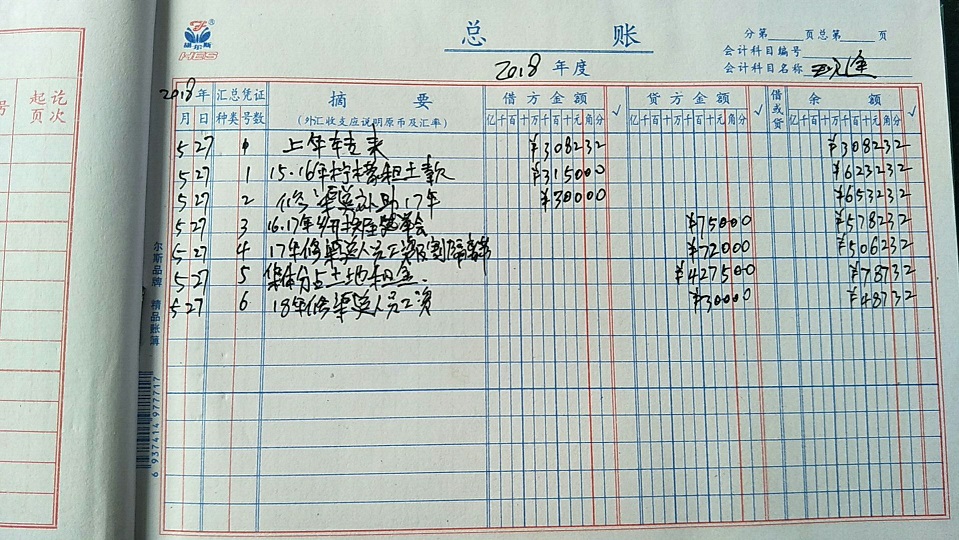 起讫
页次
号
尔斯品牌 精品账簿
6937414977717
HES
总 账
2018 年度
分第 页总第 页
会计科目编号
会计科目名称
2018年 汇总凭证 摘 要 借方金额 √ 贷方金额 √ 借或贷 余 额 √
月 日 种类 号数 (外汇收支应说明原币及汇率) 亿千百十万千百十元角分 亿千百十万千百十元角分 亿千百十万千百十元角分
5 27 上年转来 ¥308232 ¥308232
5 27 1 15.16年柠檬租土款 ¥315000 ¥623232
5 27 2 修渠堰补助17年 ¥30000 ¥653232
5 27 3 16.17年 会 ¥75000 ¥578232
5 27 4 17年修渠堰人员工资 ¥72000 ¥506232
5 27 5 集体分占土地租金. ¥427500 ¥78732
5 27 6 18年修渠堰人员工资 ¥30000 ¥48732